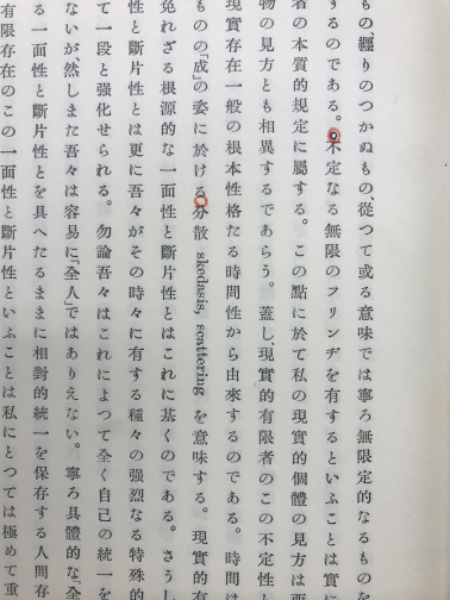 もの、纒りのつかぬもの、從つて或る意味では寧ろ無限定的なるものを
するのである。不定なる無限のフリンヂを有するといふことは實に
者の本質的規定に屬する。この點に於て私の現實的個體の見方は
物の見方とも相異するであらう。蓋し、現實的有限者のこの不定性と
現實存在一般の根本性格たる時間性から由來するのである。時間は
ものの「成」の姿に於ける分散 skedasis, scattering を意味する。現實的有
免れざる根源的な一面性と斷片性とはこれに基くのである。さうし
性と斷片性とは更に吾々がその時々に有する種々の强烈なる特殊的
て一段と强化せられる。勿論吾々はこれによつて全く自己の統一を
ないが、然しまた吾々は容易に「全人」ではありえない。寧ろ具體的な「全
る一面性と斷片性とを具へたるままに相對的統一を保存する人間存
有限存在のこの一面性と斷片性といふことは私にとつては極めて重